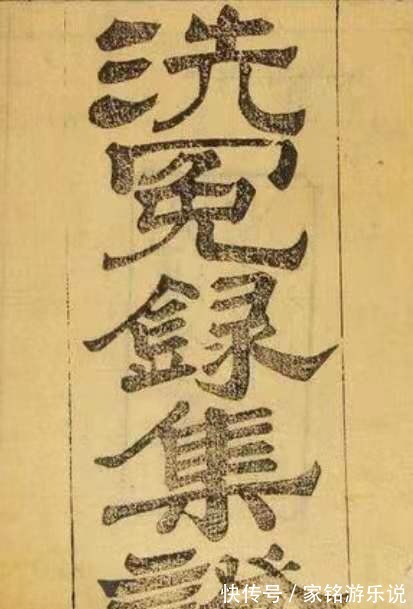 洗冤録集證
快传号/家铭游乐说